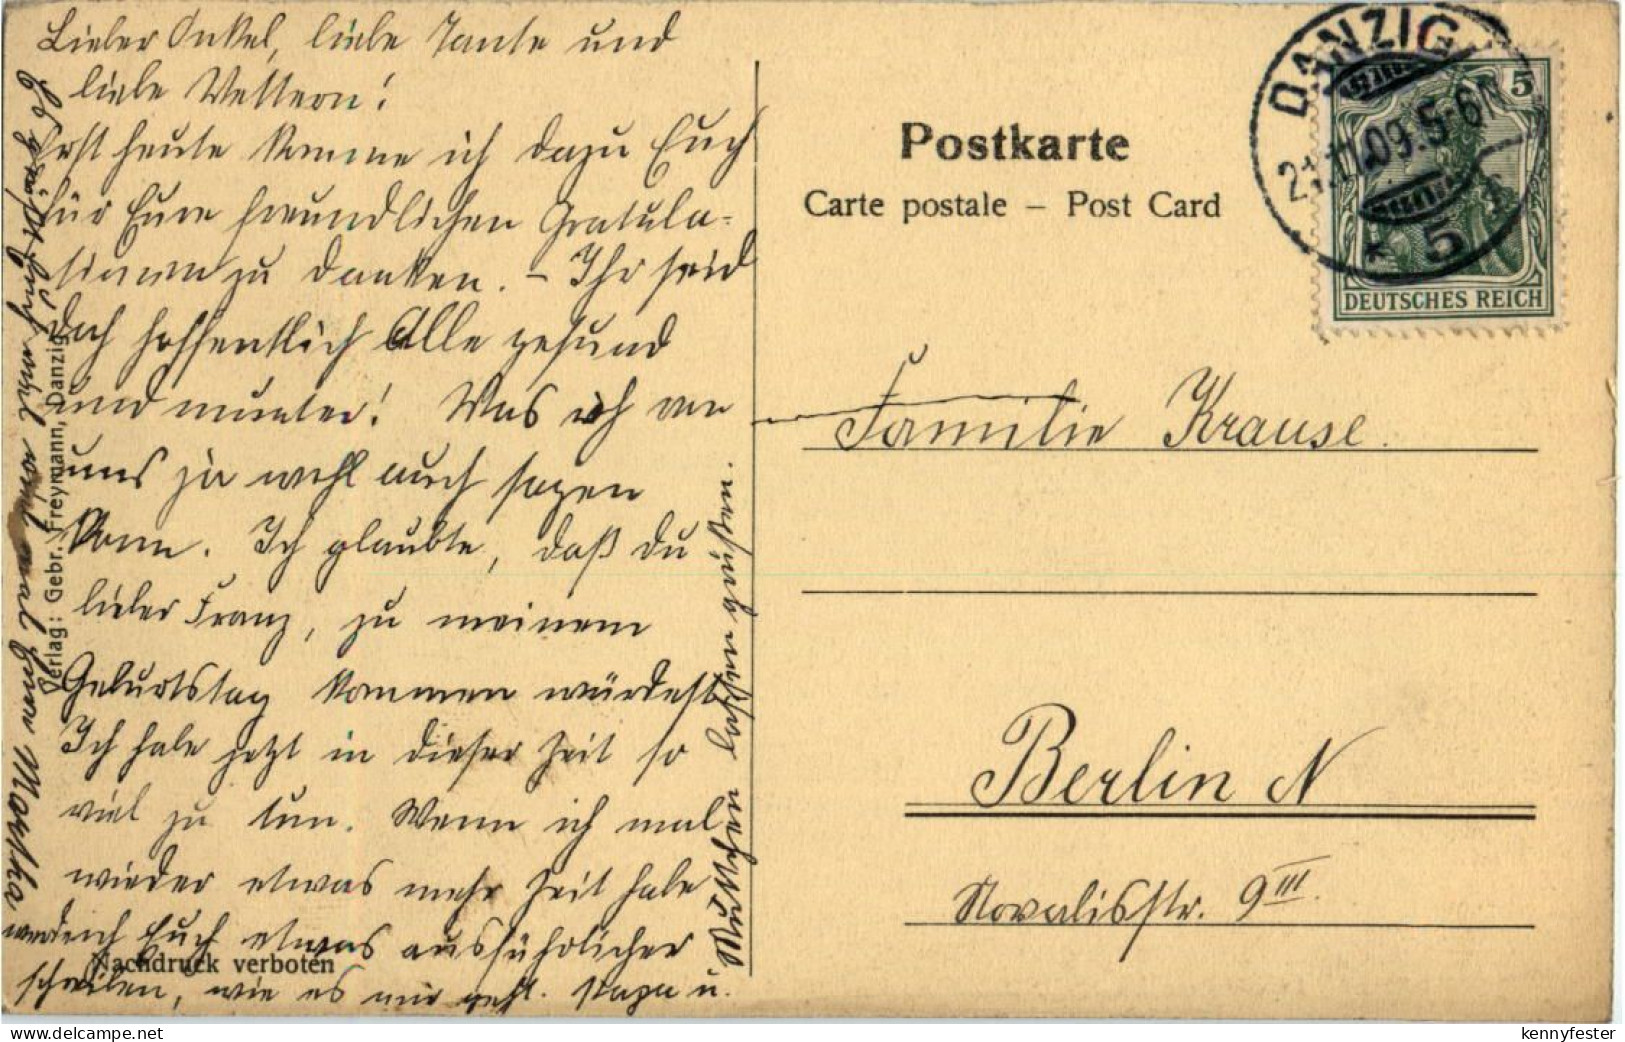 Lieber Onkel, liebe Tante und
liebe Vettern!
Erst heute komme ich dazu Euch
für Eure freundlichen Gratula=
tionen zu danken. – Ihr seid
doch hoffentlich Alle gesund
und munter! Was ich von
uns ja wohl auch sagen
kann. Ich glaubte, daß du
lieber Franz, zu meinem
Geburtstag kommen würdest.
Ich habe jetzt in dieser Zeit so
viel zu tun. Wenn ich mal
wieder etwas mehr Zeit habe
werde ich Euch etwas ausführlicher
schreiben, wie es mir geht. Papa u.
Mütterchen lassen grüßen.
Es grüßt Euch vielmal Eure Martha
Verlag: Gebr. Freymann, Danzig
Nachdruck verboten
Postkarte
Carte postale – Post Card
DANZIG
11.09.5-6N
* 5
5
DEUTSCHES REICH
Familie Krause.
Berlin N
Novalisstr. 9 III.
www.delcampe.net
kennyfester